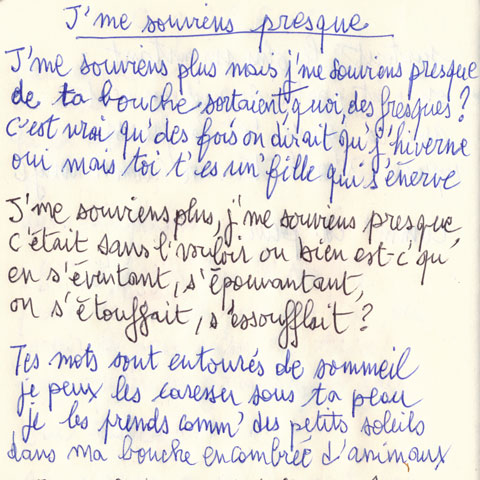 J'me souviens presque
J'me souviens plus mais j'me souviens presque
de ta bouche sortaient, quoi, des fresques ?
C'est vrai qu'des fois on dirait qu'j'hiverne
oui mais toi t'es un'fille qui s'énerve
J'me souviens plus, j'me souviens presque
c'était sans l'vouloir ou bien est-c'qu'
en s'éventant, s'épouvantant,
on s'étouffait, s'essoufflait ?
Tes mots sont entourés de sommeil
je peux les caresser sous ta peau
je les prends comm' des petits soleils
dans ma bouche encombrée d'animaux